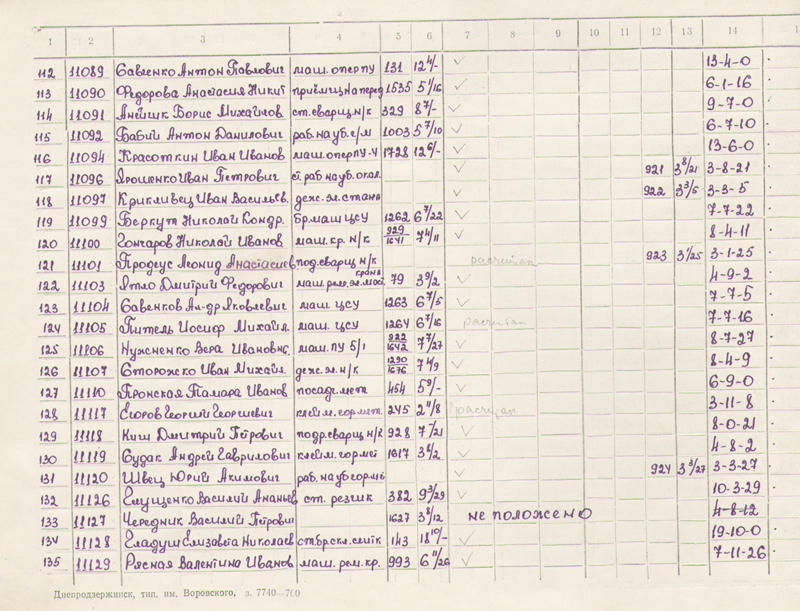 1 2 3 4 5 6 7 8 9 10 11 12 13 14
112 11089 Савченко Антон Павлович маш. опер ПУ 131 12 4/- ✓ 13-4-0
113 11090 Федорова Анастасия Никит приёмщ на перед 1535 5 1/16 ✓ 6-1-16
114 11091 Борис Михайлов ст. сварщ н/к 329 8 7/- ✓ 9-7-0
115 11092 Бабий Антон Данилович раб. на уб. с/м 1003 5 7/10 ✓ 6-7-10
116 11094 Красоткин Иван Иванов маш. опер ПУ-4 1728 12 6/- ✓ 13-6-0
117 11096 Ярошенко Иван Петрович ст. раб на уб. окал. 921 3 8/21 3-8-21
118 11097 Кривливец Иван Васильев. деж. эл. стана ✓ 922 3 3/5 3-3-5
119 11099 Беркут Николай Кондр. бр. маш ЦСУ 1262 6 7/22 ✓ 7-7-22
120 11100 Гончаров Николай Иванов маш. кр. н/к 929/1641 7 4/11 ✓ 8-4-11
121 11101 Продеус Леонид Анастасиев под. сварщ н/к расчитан 923 3 1/25 3-1-25
122 11103 Ятло Дмитрий Федорович маш. рем. эл. мост крана 79 3 9/2 ✓ 4-9-2
123 11104 Савенков Ал-др Яковлевич маш. ЦСУ 1263 6 7/5 ✓ 7-7-5
124 11105 Титель Иосиф Михайл. маш. ЦСУ 1264 6 7/16 расчитан 7-7-16
125 11106 Нужненко Вера Ивановнс. маш. ПУ 5/1 922/1642 7 7/27 ✓ 8-7-27
126 11107 Сторожко Иван Михайл деж. эл. н/к 1290/1676 7 4/9 ✓ 8-4-9
127 11110 Пронская Тамара Иванов посад. мет 454 5 9/- ✓ 6-9-0
128 11117 Егоров Георгий Георгиевич клейм. гор мет. 245 2 11/8 расчитан 3-11-8
129 11118 Киш Дмитрий Петрович подр. сварщ н/к 928 7 -/21 ✓ 8-0-21
130 11119 Судак Андрей Гаврилович клейм. гор мет 1317 3 8/2 ✓ 4-8-2
131 11120 Швец Юрий Акимович раб. на уб гор мет ✓ 924 3 3/27 3-3-27
132 11126 Елущенко Василий Ананьев ст. резчик 382 9 3/29 ✓ 10-3-29
133 11127 Чередник Василий Петрови 1627 3 8/12 не положено 4-8-12
134 11128 Гладуш Елизавета Николаев 143 18 10/- ✓ 19-10-0
135 11129 Рясная Валентина Иванов маш. рем. кр. 993 6 11/26 ✓ 7-11-26
Днепродзержинск, тип. им. Воровского, з. 7740—700